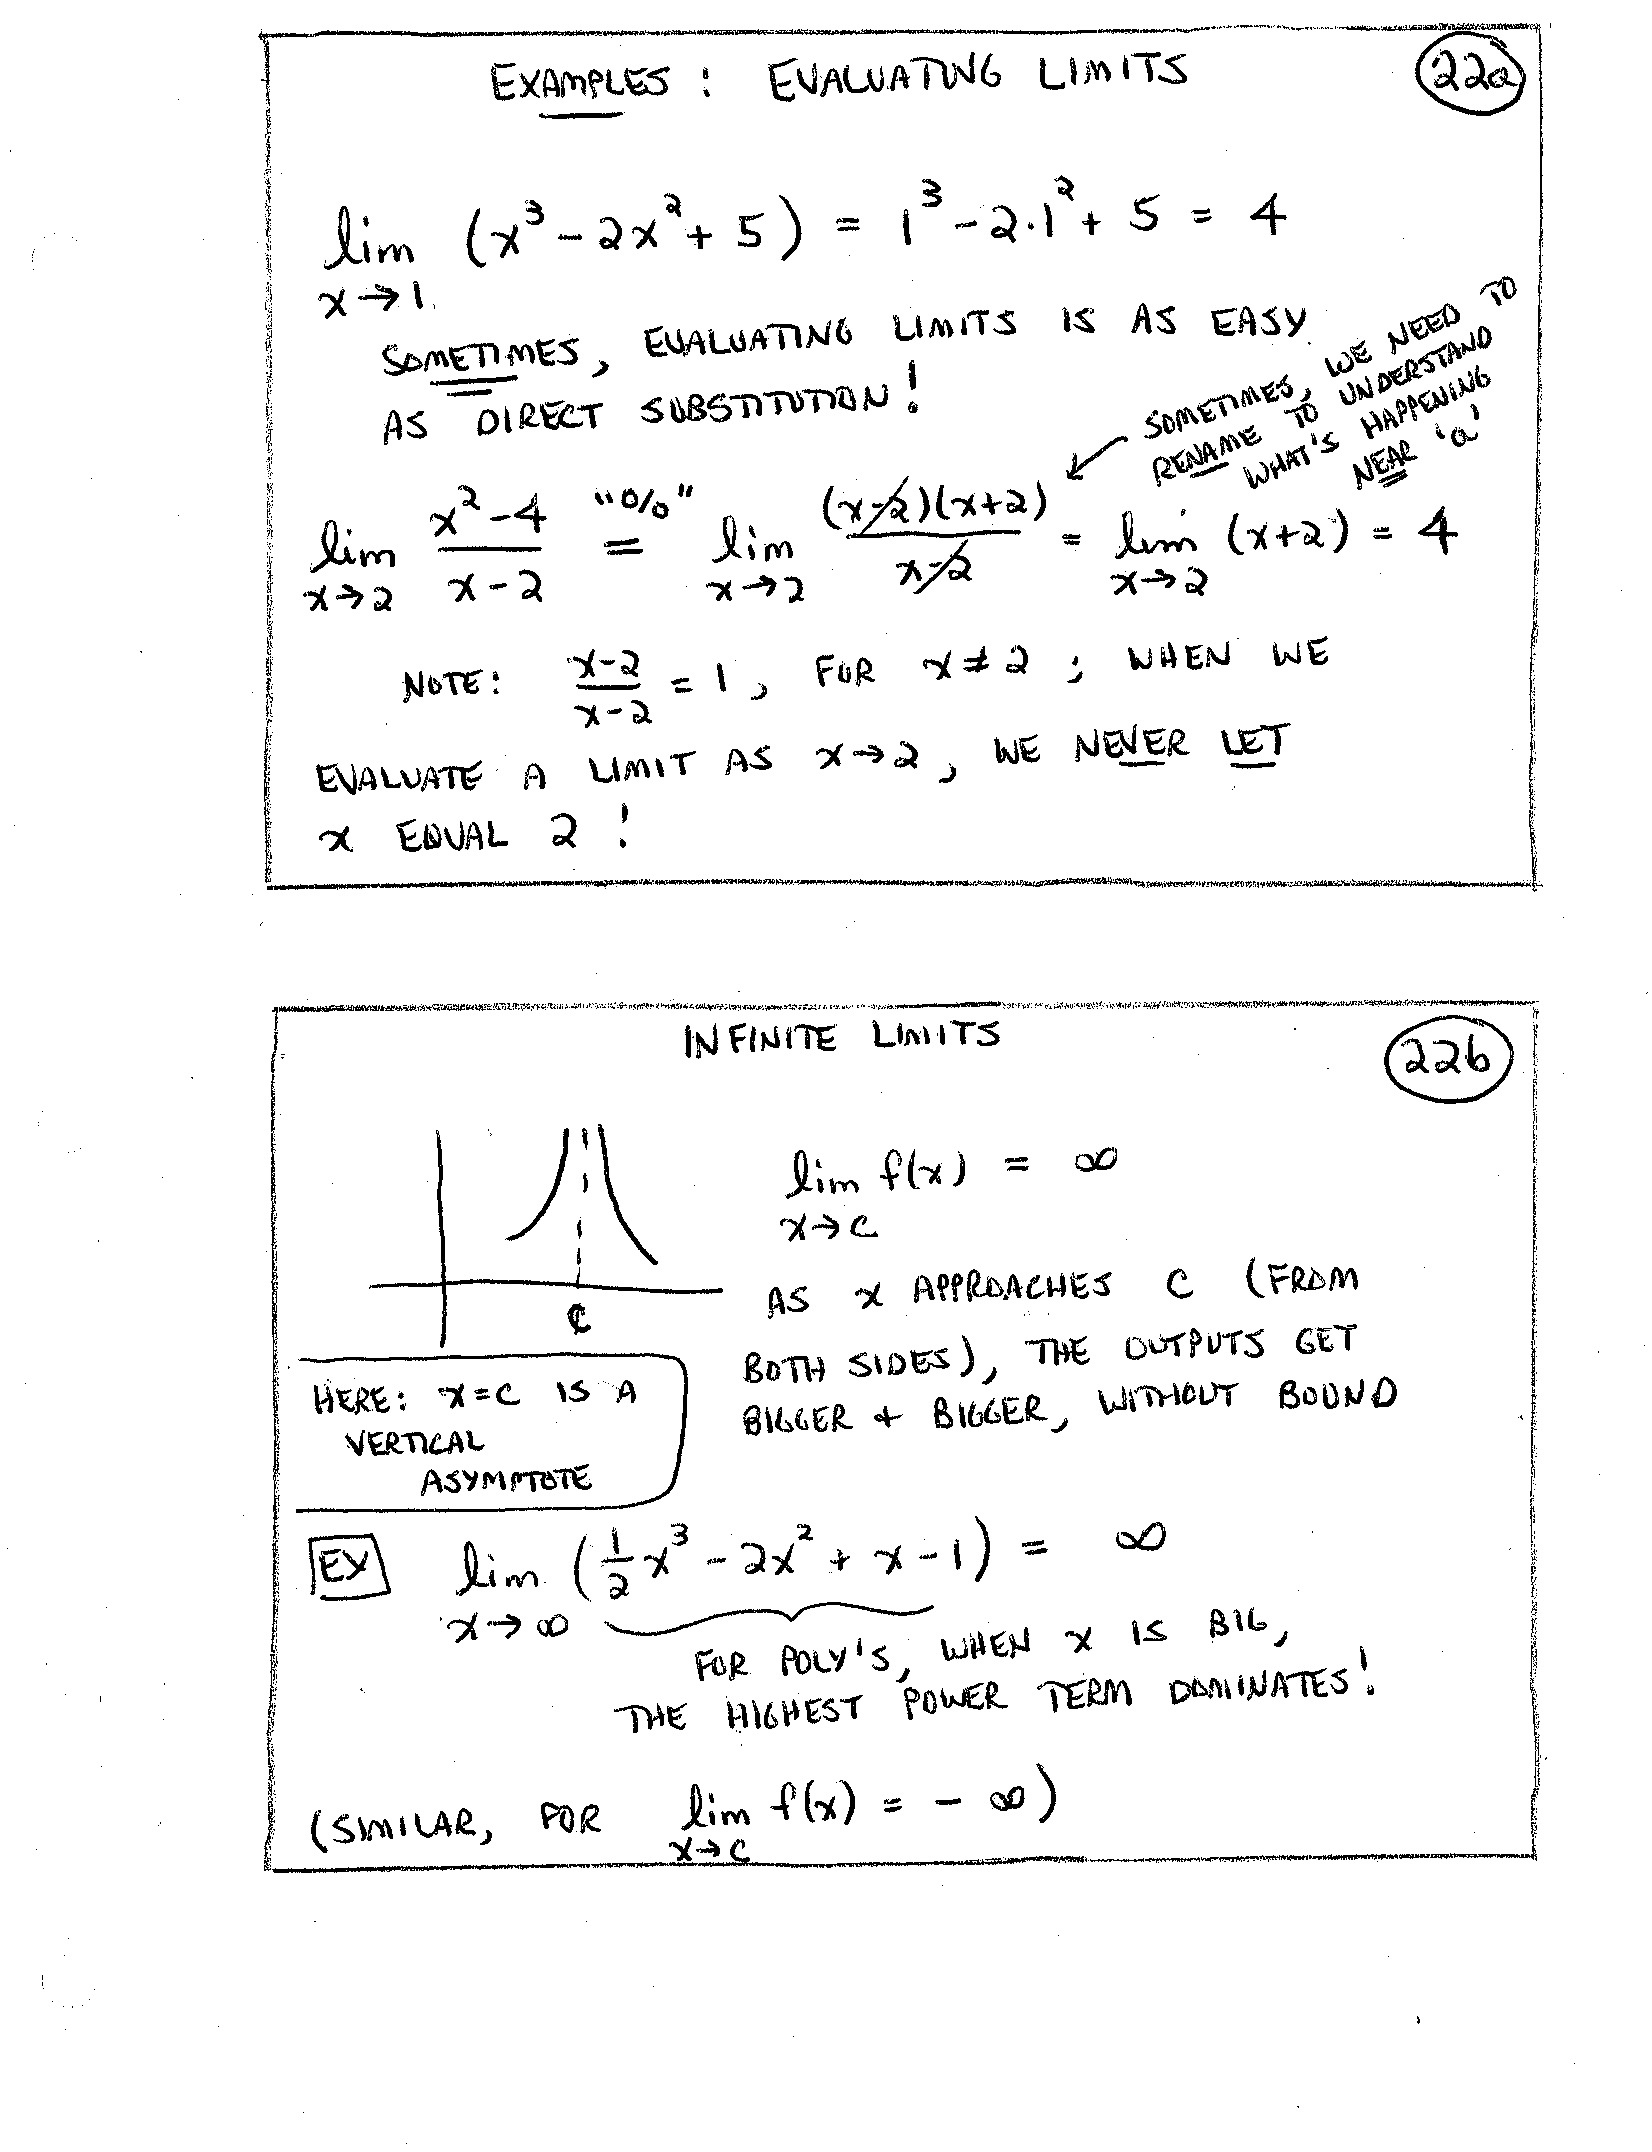 EXAMPLES : EVALUATING LIMITS
22a
lim (x³ - 2x² + 5) = 1³ - 2·1² + 5 = 4
x→1
SOMETIMES, EVALUATING LIMITS IS AS EASY
AS DIRECT SUBSTITUTION!
SOMETIMES, WE NEED TO
RENAME TO UNDERSTAND
WHAT'S HAPPENING
NEAR 'a'
lim x²-4 / x-2 "0/0" = lim (x-2)(x+2) / x-2 = lim (x+2) = 4
x→2 x→2 x→2
NOTE: x-2 / x-2 = 1, FOR x≠2 ; WHEN WE
EVALUATE A LIMIT AS x→2, WE NEVER LET
x EQUAL 2 !
INFINITE LIMITS
22b
lim f(x) = ∞
x→c
c
AS x APPROACHES C (FROM
BOTH SIDES), THE OUTPUTS GET
BIGGER + BIGGER, WITHOUT BOUND
HERE: x=c IS A
VERTICAL
ASYMPTOTE
EX lim (1/2 x³ - 2x² + x - 1) = ∞
x→∞
FOR POLY'S, WHEN x IS BIG,
THE HIGHEST POWER TERM DOMINATES!
(SIMILAR, FOR lim f(x) = - ∞)
x→c